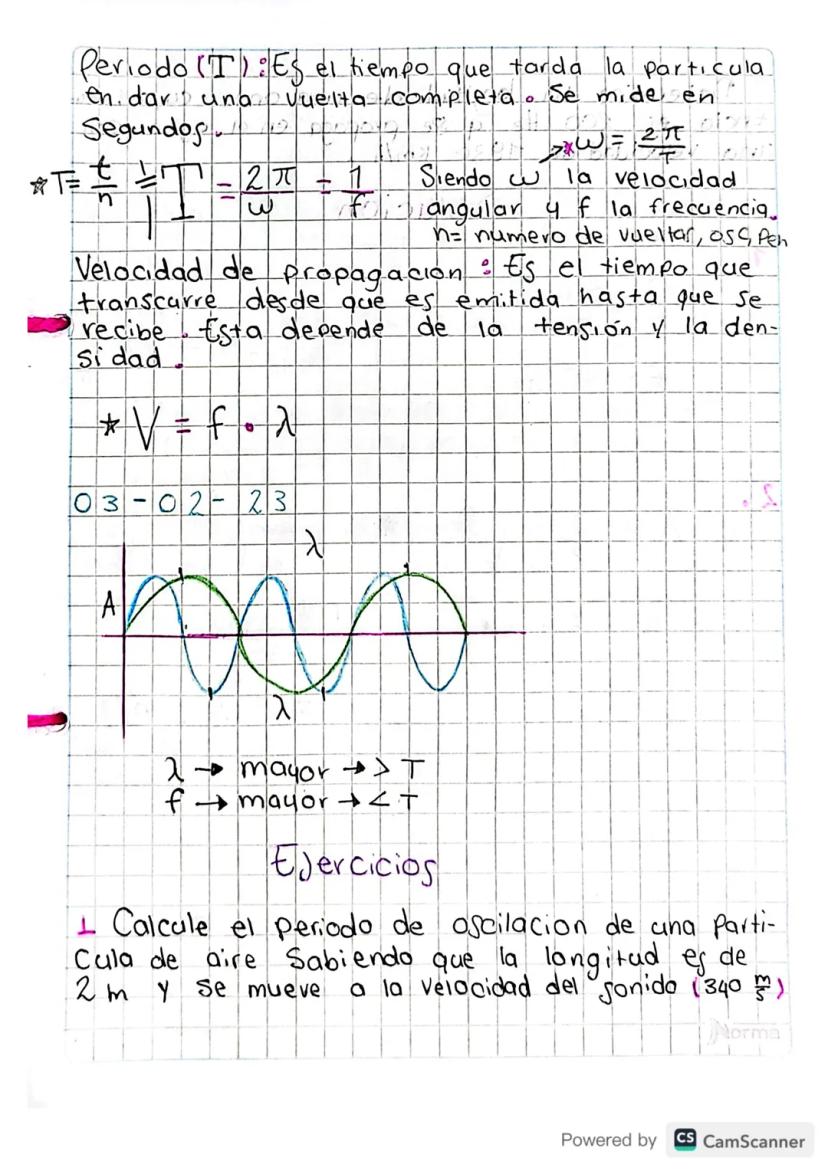 Periodo (T): Es el tiempo que tarda la particula
en dar una vuelta completa. Se mide en
Segundos.
ω = 2π/T
★T= t/n = T = 2π/ω = 1/f
Siendo ω la velocidad
angular y f la frecuencia.
n= numero de vueltas, osc, Pen
Velocidad de propagacion : Es el tiempo que
transcurre desde que es emitida hasta que se
recibe. Esta depende de la tensión y la den-
sidad.
★ V = f . λ
03-02-23
λ
A
λ
λ → mayor → > T
f → mayor → < T
Ejercicios
1 Calcule el periodo de oscilacion de una Parti-
Cula de aire Sabiendo que la longitud es de
2 m y se mueve a la velocidad del sonido (340 m/s)
Norma
Powered by CS CamScanner